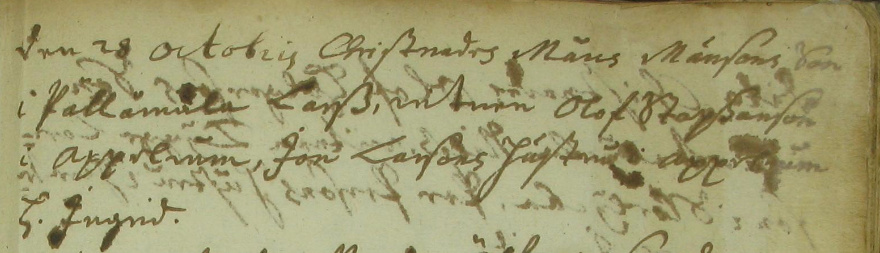 den 28 octobris Christnades Måns Månsons Son
i Pällämåla Larß, witnen Olof Staphanson
i Appelrum, Jon Larsons Hustru i Appelrum
H. Ingrid.